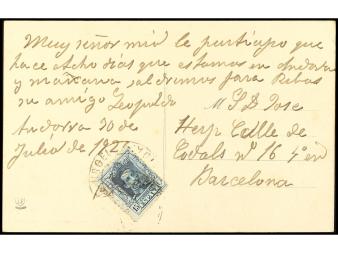 Muy señor mio le participo que
hace ocho dias que estamos en Andorra
y mañana saldremos para Ribas
su amigo Leopoldo
Andorra 30 de
Julio de 192
M S D Jose
Calle de
nº 16 4º
Barcelona